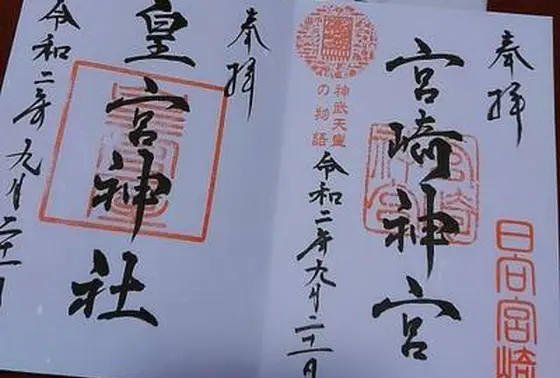 奉拝
日向宮崎
宮崎神宮
神武天皇
の物語
令和二年九月二十一日
奉拝
皇宮神社
令和二年九月二十一日